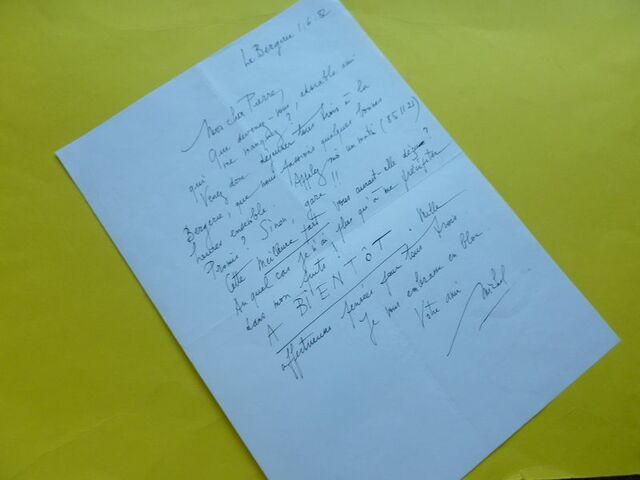 La Bergerie 1.6.82
Mon cher Pierre,
Que devenez-vous, adorable ami
qui me manquez ?
Venez donc déjeuner tous trois à la
Bergerie, que nous passions quelques bonnes
heures ensemble. Appelez moi un matin (85 11 21)
Promis ? Sinon, gare !!
Cette Meilleure part vous aurait-elle déçu ?
Auquel cas je n'ai plus qu'à me précipiter
dans mon puits !
A BIENTÔT. Mille
affectueuses pensées pour tous trois.
Je vous embrasse en bloc
Votre ami